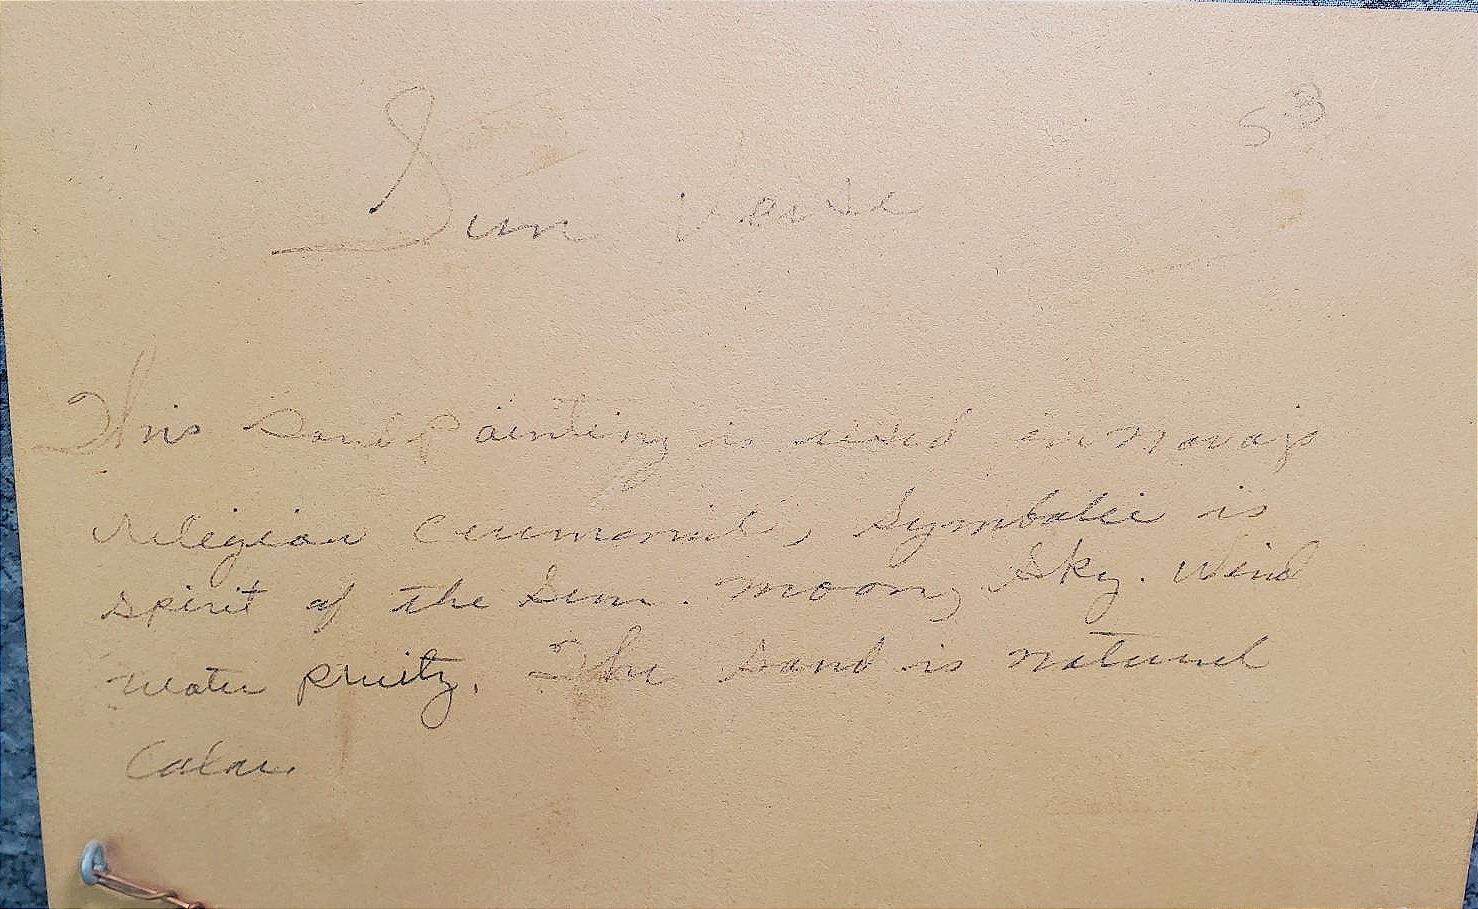 53
Sun
This Sandpainting is used in Navajo
religion ceremonial, Symbolic is
spirit of the Sun. moon, Sky. Wind
Water pruity. The sand is natural
Color.